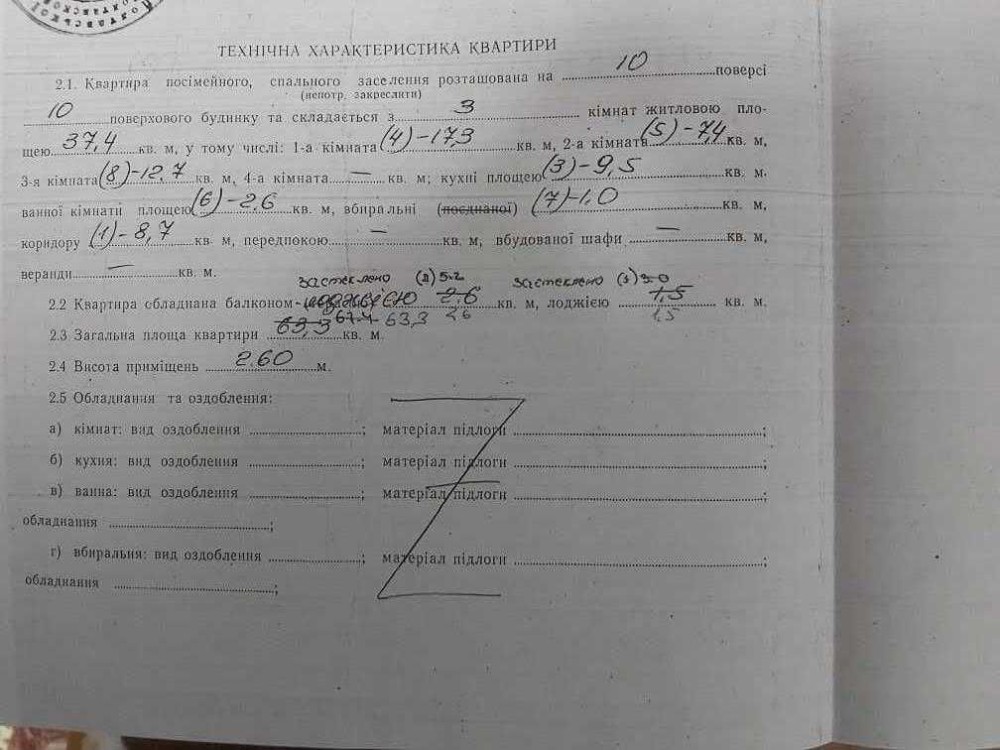 ТЕХНІЧНА ХАРАКТЕРИСТИКА КВАРТИРИ
2.1. Квартира посімейного, спального заселення розташована на 10 поверсі
(непотр. закреслити)
10 поверхового будинку та складається з 3 кімнат житловою пло-
щею 37,4 кв. м, у тому числі: 1-а кімната (4)-17,3 кв. м, 2-а кімната (5)-7,4 кв. м,
3-я кімната (8)-12,7 кв. м, 4-а кімната — кв. м; кухні площею (3)-9,5 кв. м.
ванної кімнати площею (6)-2,6 кв. м, вбиральні (поєднаної) (7)-1,0 кв. м,
коридору (1)-8,7 кв. м, передпокою — кв. м, вбудованої шафи — кв. м,
веранди — кв. м.
застеклено (2) 5.2 застеклено (3) 3.0
2.2 Квартира обладнана балконом-лоджією 2.6 кв. м, лоджією 1,5 кв. м.
2.6 1,5
2.3 Загальна площа квартири 63,3 67.4 63,3 кв. м.
2.4 Висота приміщень 2.60 м.
2.5 Обладнання та оздоблення:
а) кімнат: вид оздоблення ; матеріал підлоги ;
б) кухня: вид оздоблення ; матеріал підлоги ;
в) ванна: вид оздоблення ; матеріал підлоги ;
обладнання ;
г) вбиральня: вид оздоблення ; матеріал підлоги ;
обладнання ;